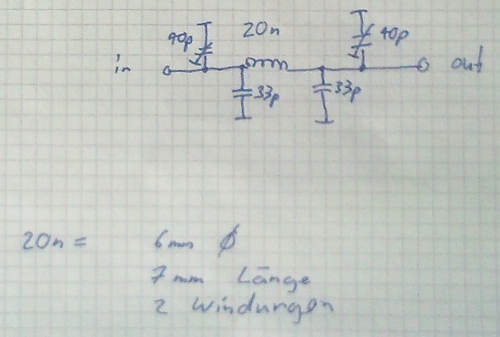 40p 20n 40p
in 33p 33p out
20n = 6mm Ø
7mm Länge
2 Windungen